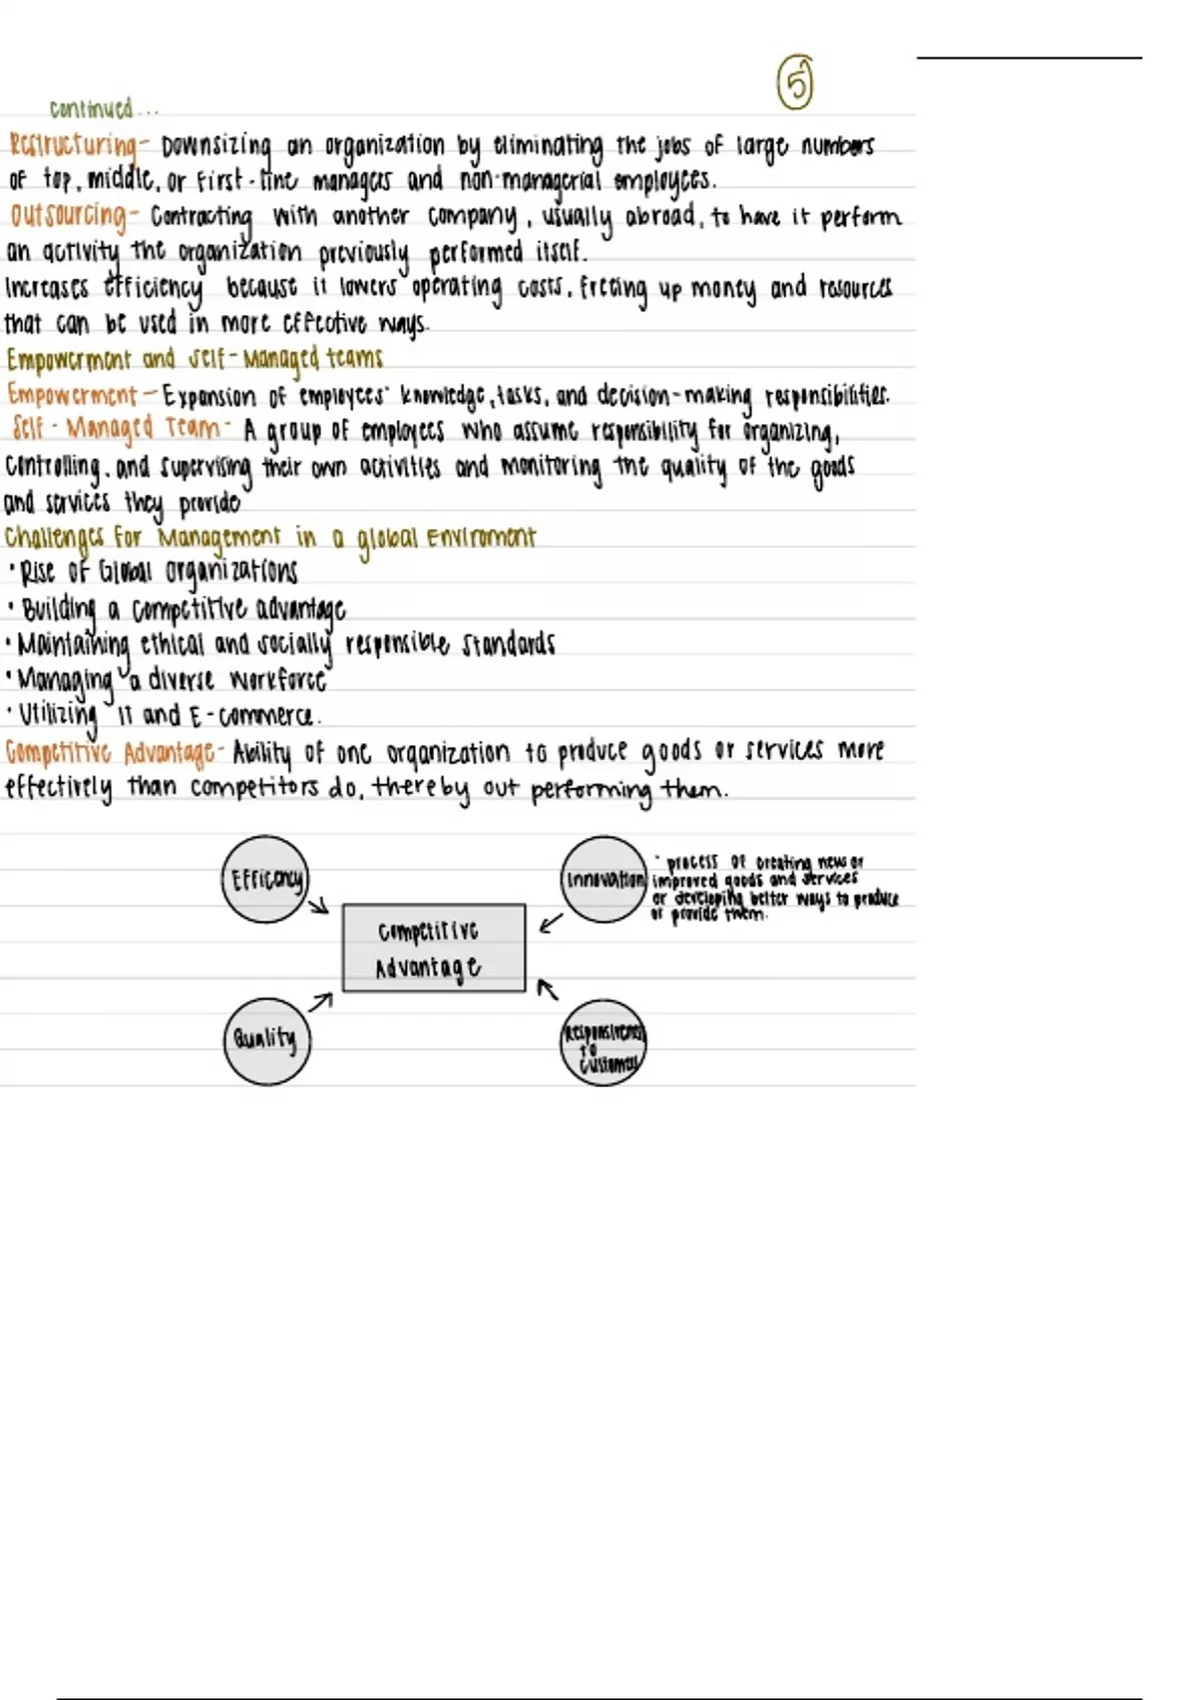 5
continued...
Restructuring- Downsizing an organization by eliminating the jobs of large numbers
of top, middle, or first-line managers and non-managerial employees.
Outsourcing- Contracting with another company, usually abroad, to have it perform
an activity the organization previously performed itself.
Increases efficiency because it lowers operating costs, freeing up money and resources
that can be used in more effective ways.
Empowerment and Self-Managed teams
Empowerment- Expansion of employees' knowledge, tasks, and decision-making responsibilities.
Self-Managed Team- A group of employees who assume responsibility for organizing,
controlling, and supervising their own activities and monitoring the quality of the goods
and services they provide
Challenges for Management in a global Enviroment
• Rise of Global organizations
• Building a competitive advantage
• Maintaining ethical and socially responsible standards
• Managing a diverse workforce
• Utilizing IT and E-commerce.
Competitive Advantage- Ability of one organization to produce goods or services more
effectively than competitors do, thereby out performing them.
Efficancy
Innovation
• process of creating new or
improved goods and services
or developing better ways to produce
or provide them.
Competitive
Advantage
Quality
Responsiveness
to
customers